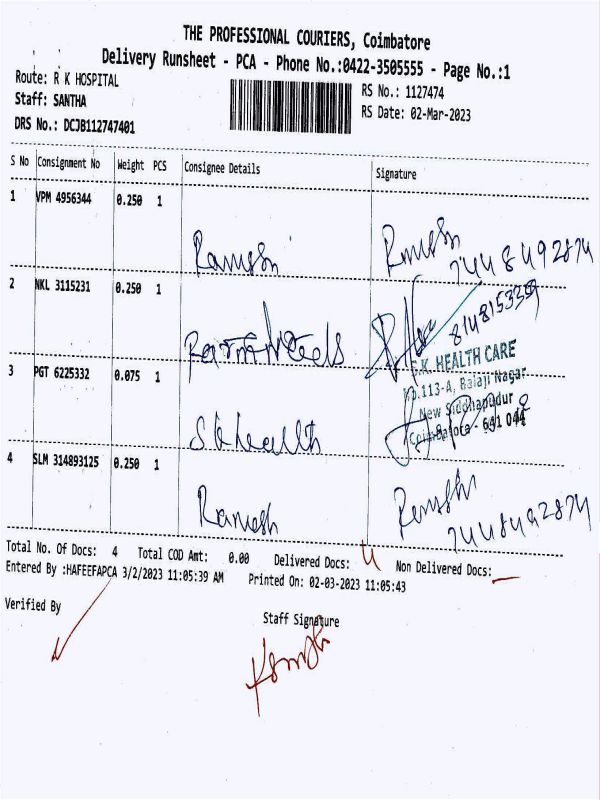 THE PROFESSIONAL COURIERS, Coimbatore
Delivery Runsheet - PCA - Phone No.:0422-3505555 - Page No.:1
Route: R K HOSPITAL
RS No.: 1127474
Staff: SANTHA
RS Date: 02-Mar-2023
DRS No.: DCJB112747401
S No Consignment No Weight PCS Consignee Details Signature
1 VPM 4956344 0.250 1
Ramesh Ramesh
7448492874
2 NKL 3115231 0.250 1
8148153339
S.K. HEALTH CARE
No.113-A, Balaji Nagar
3 PGT 6225332 0.075 1
New Siddhapudur
Coimbatore - 641 044
S k health
4 SLM 314893125 0.250 1
Ramesh Ramesh
7448492874
Total No. Of Docs: 4 Total COD Amt: 0.00 Delivered Docs: 4 Non Delivered Docs: —
Entered By :HAFEEFAPCA 3/2/2023 11:05:39 AM Printed On: 02-03-2023 11:05:43
Verified By
Staff Signature